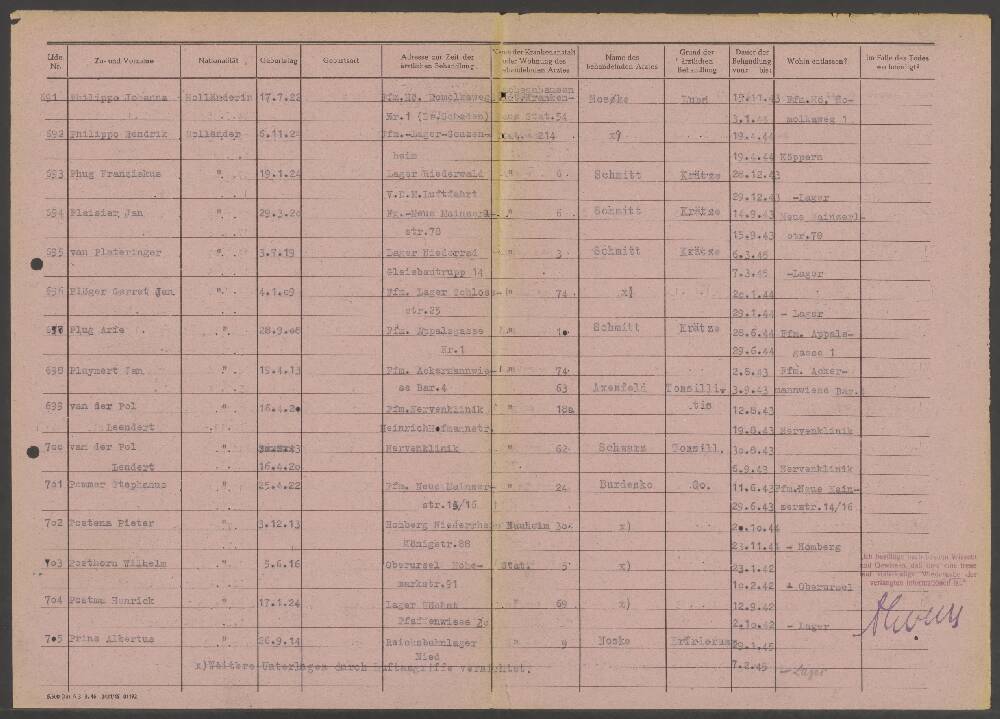 Lfde. Nr. Zu- und Vorname Nationalität Geburtstag Geburtsort Adresse zur Zeit der ärztlichen Behandlung Name der Krankenanstalt oder Wohnung des behandelnden Arztes Name des behandelnden Arztes Grund der ärztlichen Behandlung Dauer der Behandlung vom: bis: Wohin entlassen? Im Falle des Todes wo beerdigt?
691 Philippo Johanna Holländerin 17.7.22 19.11.43
Nr.1 Stat.54 3.1.44 molkaweg 1
692 Philippo Hendrik Holländer Ffm.-Lager-Gonzen- Stat. 214 x) 19.4.44
heim 19.4.44 Köppern
693 Phug Franziskus " 19.1.24 Lager Riederwald " 6 Schmitt Krätze 28.12.43
V.D.M.Luftfahrt 29.12.43 -Lager
694 Plaisier Jan " 29.3.20 -Neue Mainzerl- " 6 Schmitt Krätze 14.9.43 Neue Mainzerl-
str.78 15.9.43 str.78
695 van Plateringer " 3.7.19 Lager Niederrad " 3 Schmitt Krätze 6.3.45
Gleisbautrupp 14 7.3.45 -Lager
696 Plüger Gerret Jan " 4.1.09 Ffm. Lager Schloss- " 74 x)
str.25 29.1.44 - Lager
Plug Arie " 28.9.08 Ffm. Appelsgasse " Schmitt Krätze 28.6.44 Ffm. Appels-
Nr.1 29.6.44 gasse 1
698 Pluymert Jan " 19.4.13 Ffm. Ackermannwie- " 74 2.8.43 Ffm. Acker-
se Bar.4 63 Axenfeld Tonsilli- 3.9.43 mannwiese Bar.
699 van der Pol " 16.4.20 Ffm.Nervenklinik " 18a tis 12.8.43
Leendert Heinrich Hofmannstr. 19.8.43 Nervenklinik
700 van der Pol " Nervenklinik " 62 Schwarz Tonsill. 30.8.43
Lendert 16.4.20 6.9.43 Nervenklinik
701 Pommer Stephanus " 25.4.22 Ffm. Neue Mainzer- " 24 Burdesko Go. 11.6.43 Ffm.Neue Main-
str.14/16 29.6.43 zerstr.14/16
702 Postema Pieter " 3.12.13 Homberg Niederrhein Nauheim 30 x) 20.10.44
Königstr.88 23.11.44 - Homberg
703 Posthorn Wilhelm " 5.6.16 Oberursel Hohe- Stat. 5 x) 23.1.42
markstr.91 10.2.42 Oberursel
704 Postma Henrick " 17.1.24 Lager Höchst " 69 x) 12.9.42
Pfaffenwiese 2.10.42 - Lager
705 Prins Albertus " 26.9.14 Reichsbahnlager " 9 Noske Erfrierung
Nied 7.2.45 - Lager
x)Weitere Unterlagen durch Luftangriffe vernichtet.
Ich bestätige nach bestem Wissen
und Gewissen, daß dies eine treue
und vollständige Wiedergabe der
verlangten Informationen ist."